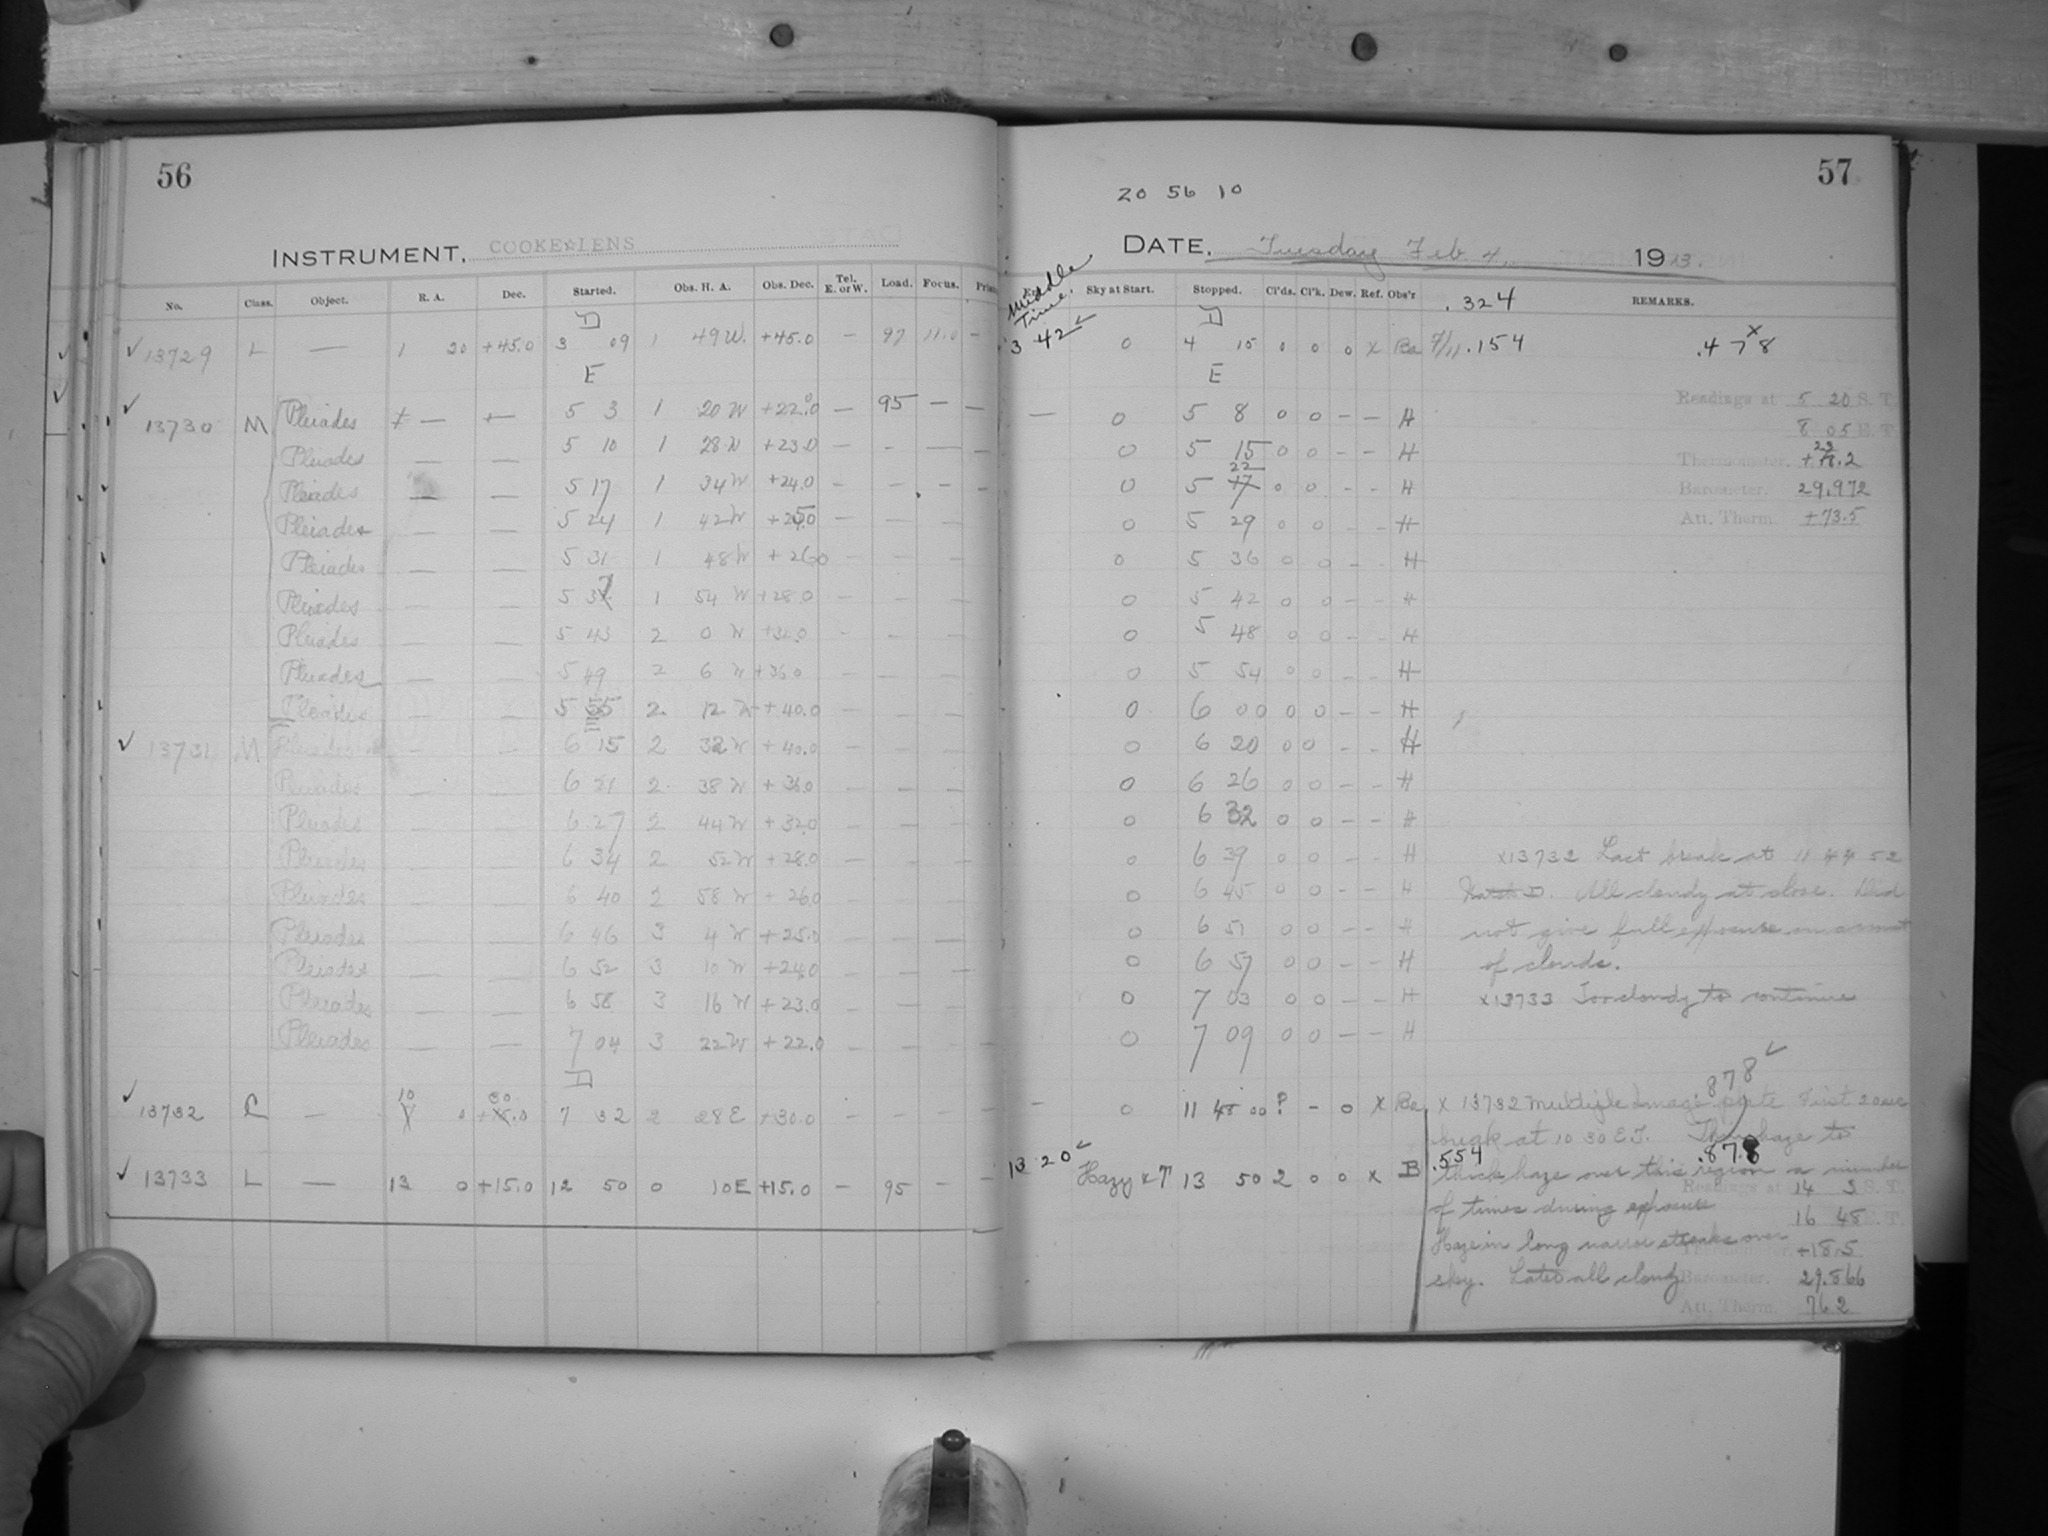 56
INSTRUMENT, COOKE LENS
No. Class. Object. R. A. Dec. Started. Obs. H. A. Obs. Dec. Tel. E. or W. Load. Focus.
D
13729 L — 1 20 +45.0 3 09 1 49 W. +45.0 — 97 11.0 —
E
13730 M Pleiades — — 5 3 1 20 W +22.0 — 95 — —
Pleiades — — 5 10 1 28 W +23.0 — - — —
Pleiades — — 5 17 1 34 W +24.0 — — — —
Pleiades — — 5 24 1 42 W +25.0 — — — —
Pleiades — — 5 31 1 48 W +26.0 — — — —
Pleiades — — 5 37 1 54 W +28.0 — — — —
Pleiades — — 5 43 2 0 W — — — —
Pleiades — — 5 49 2 6 W +36.0 — — — —
Pleiades — — 5 55 2 12 W +40.0 — — — —
13731 M Pleiades — — 6 15 2 32 W +40.0 — — — —
Pleiades — — 6 21 2 38 W +36.0 — — — —
Pleiades — — 6 27 2 44 W +32.0 — — — —
Pleiades — — 6 34 2 52 W +28.0 — — — —
Pleiades — — 6 40 2 58 W +26.0 — — — —
Pleiades — — 6 46 3 4 W +25.0 — — — —
Pleiades — — 6 52 3 10 W +24.0 — — — —
Pleiades — — 6 58 3 16 W +23.0 — — — —
Pleiades — — 7 04 3 22 W +22.0 — — — —
D
13732 C — 10 0 +30.0 7 32 2 28 E +30.0 — — — —
13733 L — 13 0 +15.0 12 50 0 10 E +15.0 — 95 — —
57
20 56 10
DATE, Tuesday Feb 4, 1913.
Middle Time. Sky at Start. Stopped. Cl'ds. Cl'k. Dew. Ref. Obs'r .324 REMARKS.
D
3 42 0 4 15 0 0 0 x Ba .154 .478 x
E
— 0 5 8 0 0 — — H
0 5 15 0 0 — — H
0 5 22 0 0 — — H
0 5 29 0 0 — — H
0 5 36 0 0 — — H
0 5 42 0 0 — — H
0 5 48 0 0 — — H
0 5 54 0 0 — — H
0 6 00 0 0 — — H
0 6 20 0 0 — — H
0 6 26 0 0 — — H
0 6 32 0 0 — — H
0 6 39 0 0 — — H
0 6 45 0 0 — — H
0 6 51 0 0 — — H
0 6 57 0 0 — — H
0 7 03 0 0 — — H
0 7 09 0 0 — — H
— 0 11 45 00 ? - 0 x Ba
13 20 Hazy x T 13 50 2 0 0 x B
Readings at 5 20 S. T.
8 05 E. T.
Thermometer.
Barometer. 29.972
Att. Therm. +73.5
x13732 Last break at 11 44 52
All cloudy at close. Did
not give full exposure on account
of clouds.
x13733 Too cloudy to continue
.878
x 13732 Multiple Image plate First 20 sec
break at 10 30 E.T. Thin haze to
.554 .878
thick haze over this region a number
of times during exposure
Haze in long narrow streaks over
sky. Later all cloudy
Readings at 14 3 S. T.
16 48 E. T.
+18.5
Barometer. 29.866
Att. Therm. 76 2